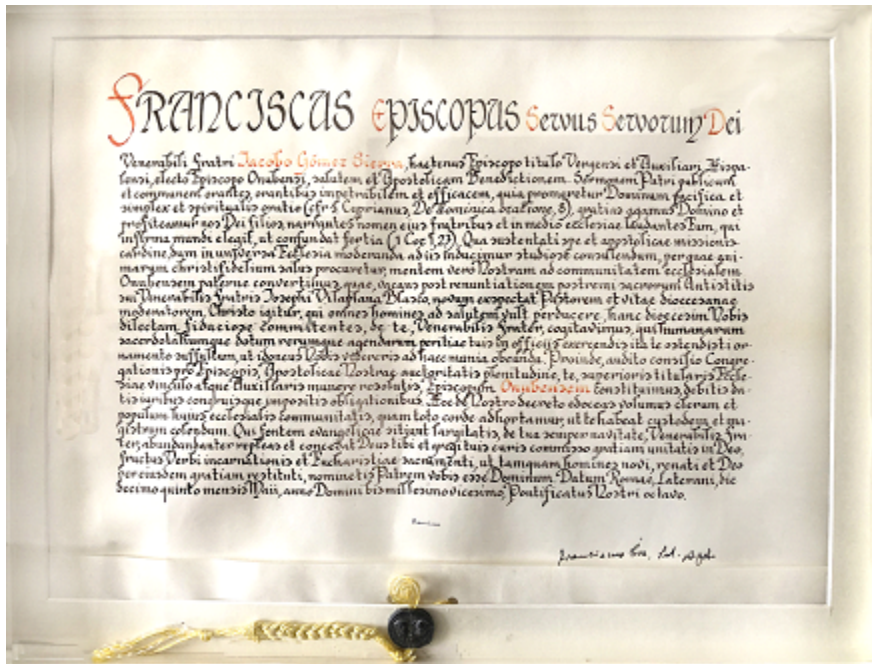 FRANCISCUS EPISCOPUS Servus Servorum Dei
Venerabili Fratri Iacobo Gómez Sierra, hactenus Episcopo titulo Vergensi et Auxiliari Hispa-
lensi, electo Episcopo Onubensi, salutem et Apostolicam Benedictionem. Sermonem Patri publicum
et communem orantes, orantibus impetrabilem et efficacem, quia promeretur Dominum pacifica et
simplex et spiritualis oratio (cfr S. Cyprianus, De dominica oratione, 8), gratias agamus Domino et
profiteamur nos Dei filios, narrantes nomen eius fratribus et in medio ecclesiae laudantes Eum, qui
infirma mundi elegit, ut confundat fortia (1 Cor 1,27). Qua sustentati spe et apostolicae missionis
cardine, dum in universa Ecclesia moderanda ad iis inducimur studiose consulendum, per quae ani-
marum christifidelium salus procuretur, mentem vero Nostram ad communitatem ecclesialem
Onubensem paterne convertimus, quae, vacans post renuntiationem postremi sacrorum Antistitis
sui Venerabilis Fratris Iosephi Vilaplana Blasco, novum exspectat Pastorem et vitae dioecesanae
moderatorem. Christo igitur, qui omnes homines ad salutem vult perducere, hanc dioecesim Nobis
dilectam, fidaciose committentes, de te, Venerabilis Frater, cogitavimus, qui humanarum
sacerdotaliumque dotum rerumque agendarum peritiae tuis in officiis exercendis ita te ostendisti or-
namento suffultum, ut idoneus Nobis videreris ad haec munia obeunda. Proinde, audito consilio Congre-
gationis pro Episcopis, Apostolicae Nostrae auctoritatis plenitudine, te, superioris titularis Eccle-
siae vinculo atque Auxiliaris munere resolutis, Episcopum Onubensem constituimus, debitis da-
tis iuribus congruisque impositis obligationibus. Hoc de Nostro decreto edoceas volumus clerum et
populum huius ecclesialis communitatis, quam toto corde adhortamur, ut te habeat custodem et ma-
gistrum colendum. Qui fontem evangelicae sitiunt largitatis, de tua semper navitate, Venerabilis Fra-
ter, abundanter repleas et concedat Deus tibi et gregi tuis curis commisso gratiam unitatis in Deo,
fructus Verbi incarnationis et Eucharistiae sacramenti, ut tamquam homines novi, renati et Deo
per eiusdem gratiam restituti, nominetis Patrem vobis esse Dominum. Datum Romae, Laterani, die
decimo quinto mensis Maii, anno Domini bis millesimo vicesimo, Pontificatus Nostri octavo.
Franciscus